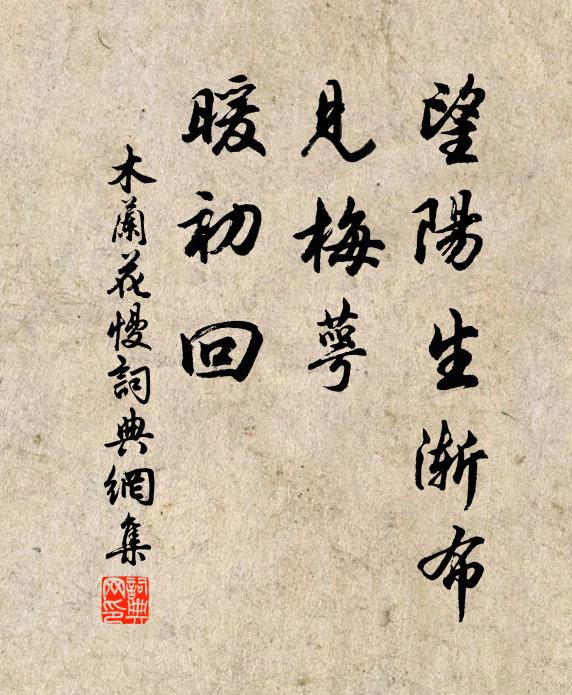 望陽生漸布
見梅萼
暖初回
木蘭花慢詞典網集
詞典網印